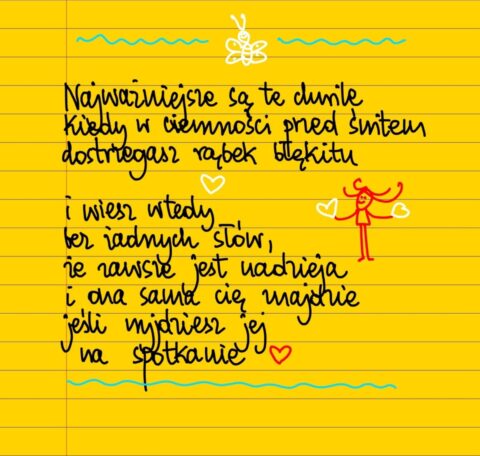 Najważniejsze są te chwile
kiedy w ciemności przed świtem
dostrzegasz rąbek błękitu
i wiesz wtedy
bez żadnych słów,
że zawsze jest nadzieja
i ona sama cię znajdzie
jeśli wyjdziesz jej
na spotkanie